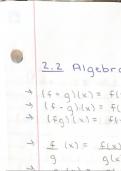 2.2 Algebra
→ (f + g)(x) = f(
→ (f - g)(x) = f(
→ (fg)(x) = f(
→ f (x) = f(x)
g g(x